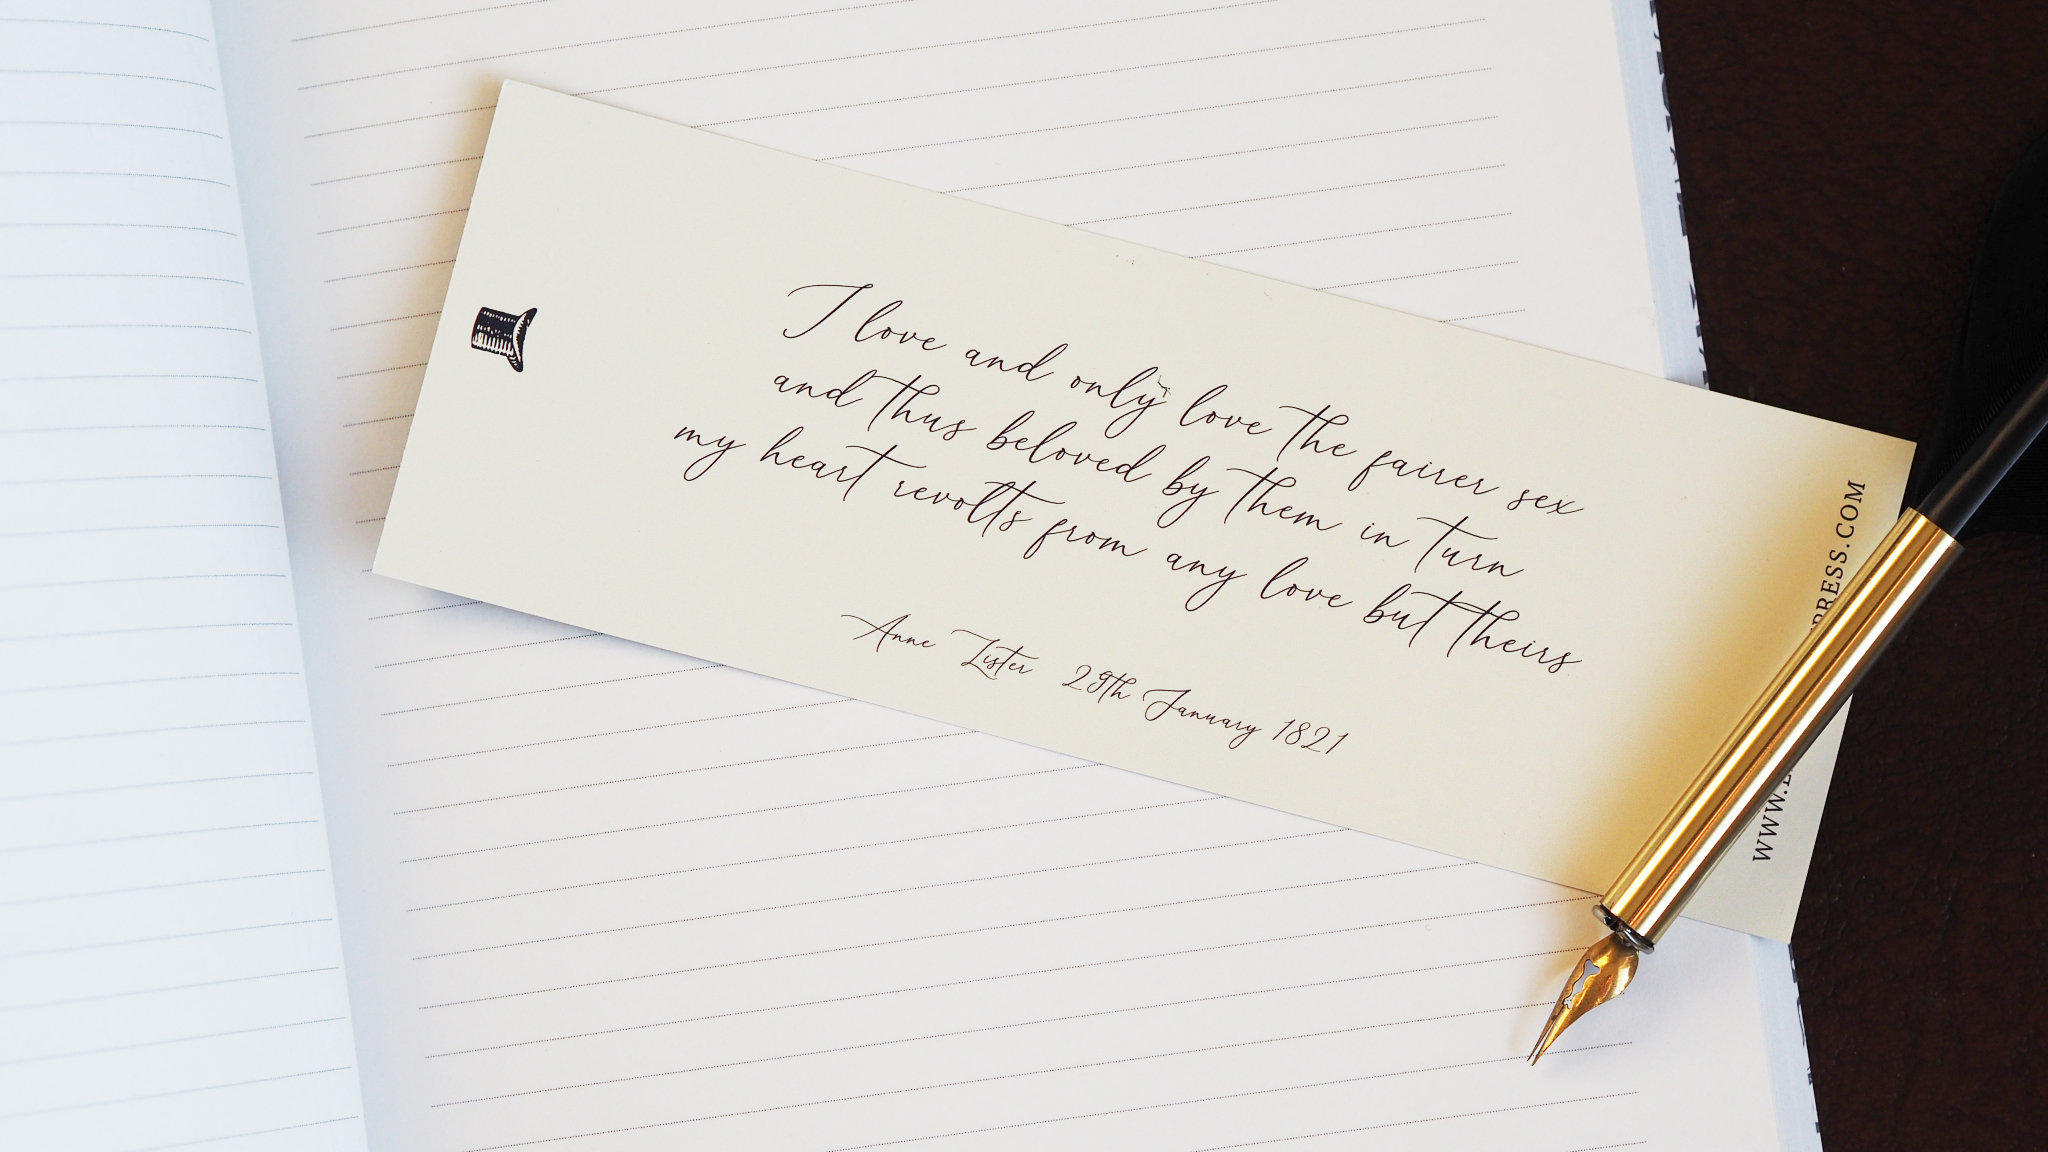 I love and only love the fairer sex
and thus beloved by them in turn
my heart revolts from any love but theirs
Anne Lister 29th January 1821
WWW. PRESS.COM